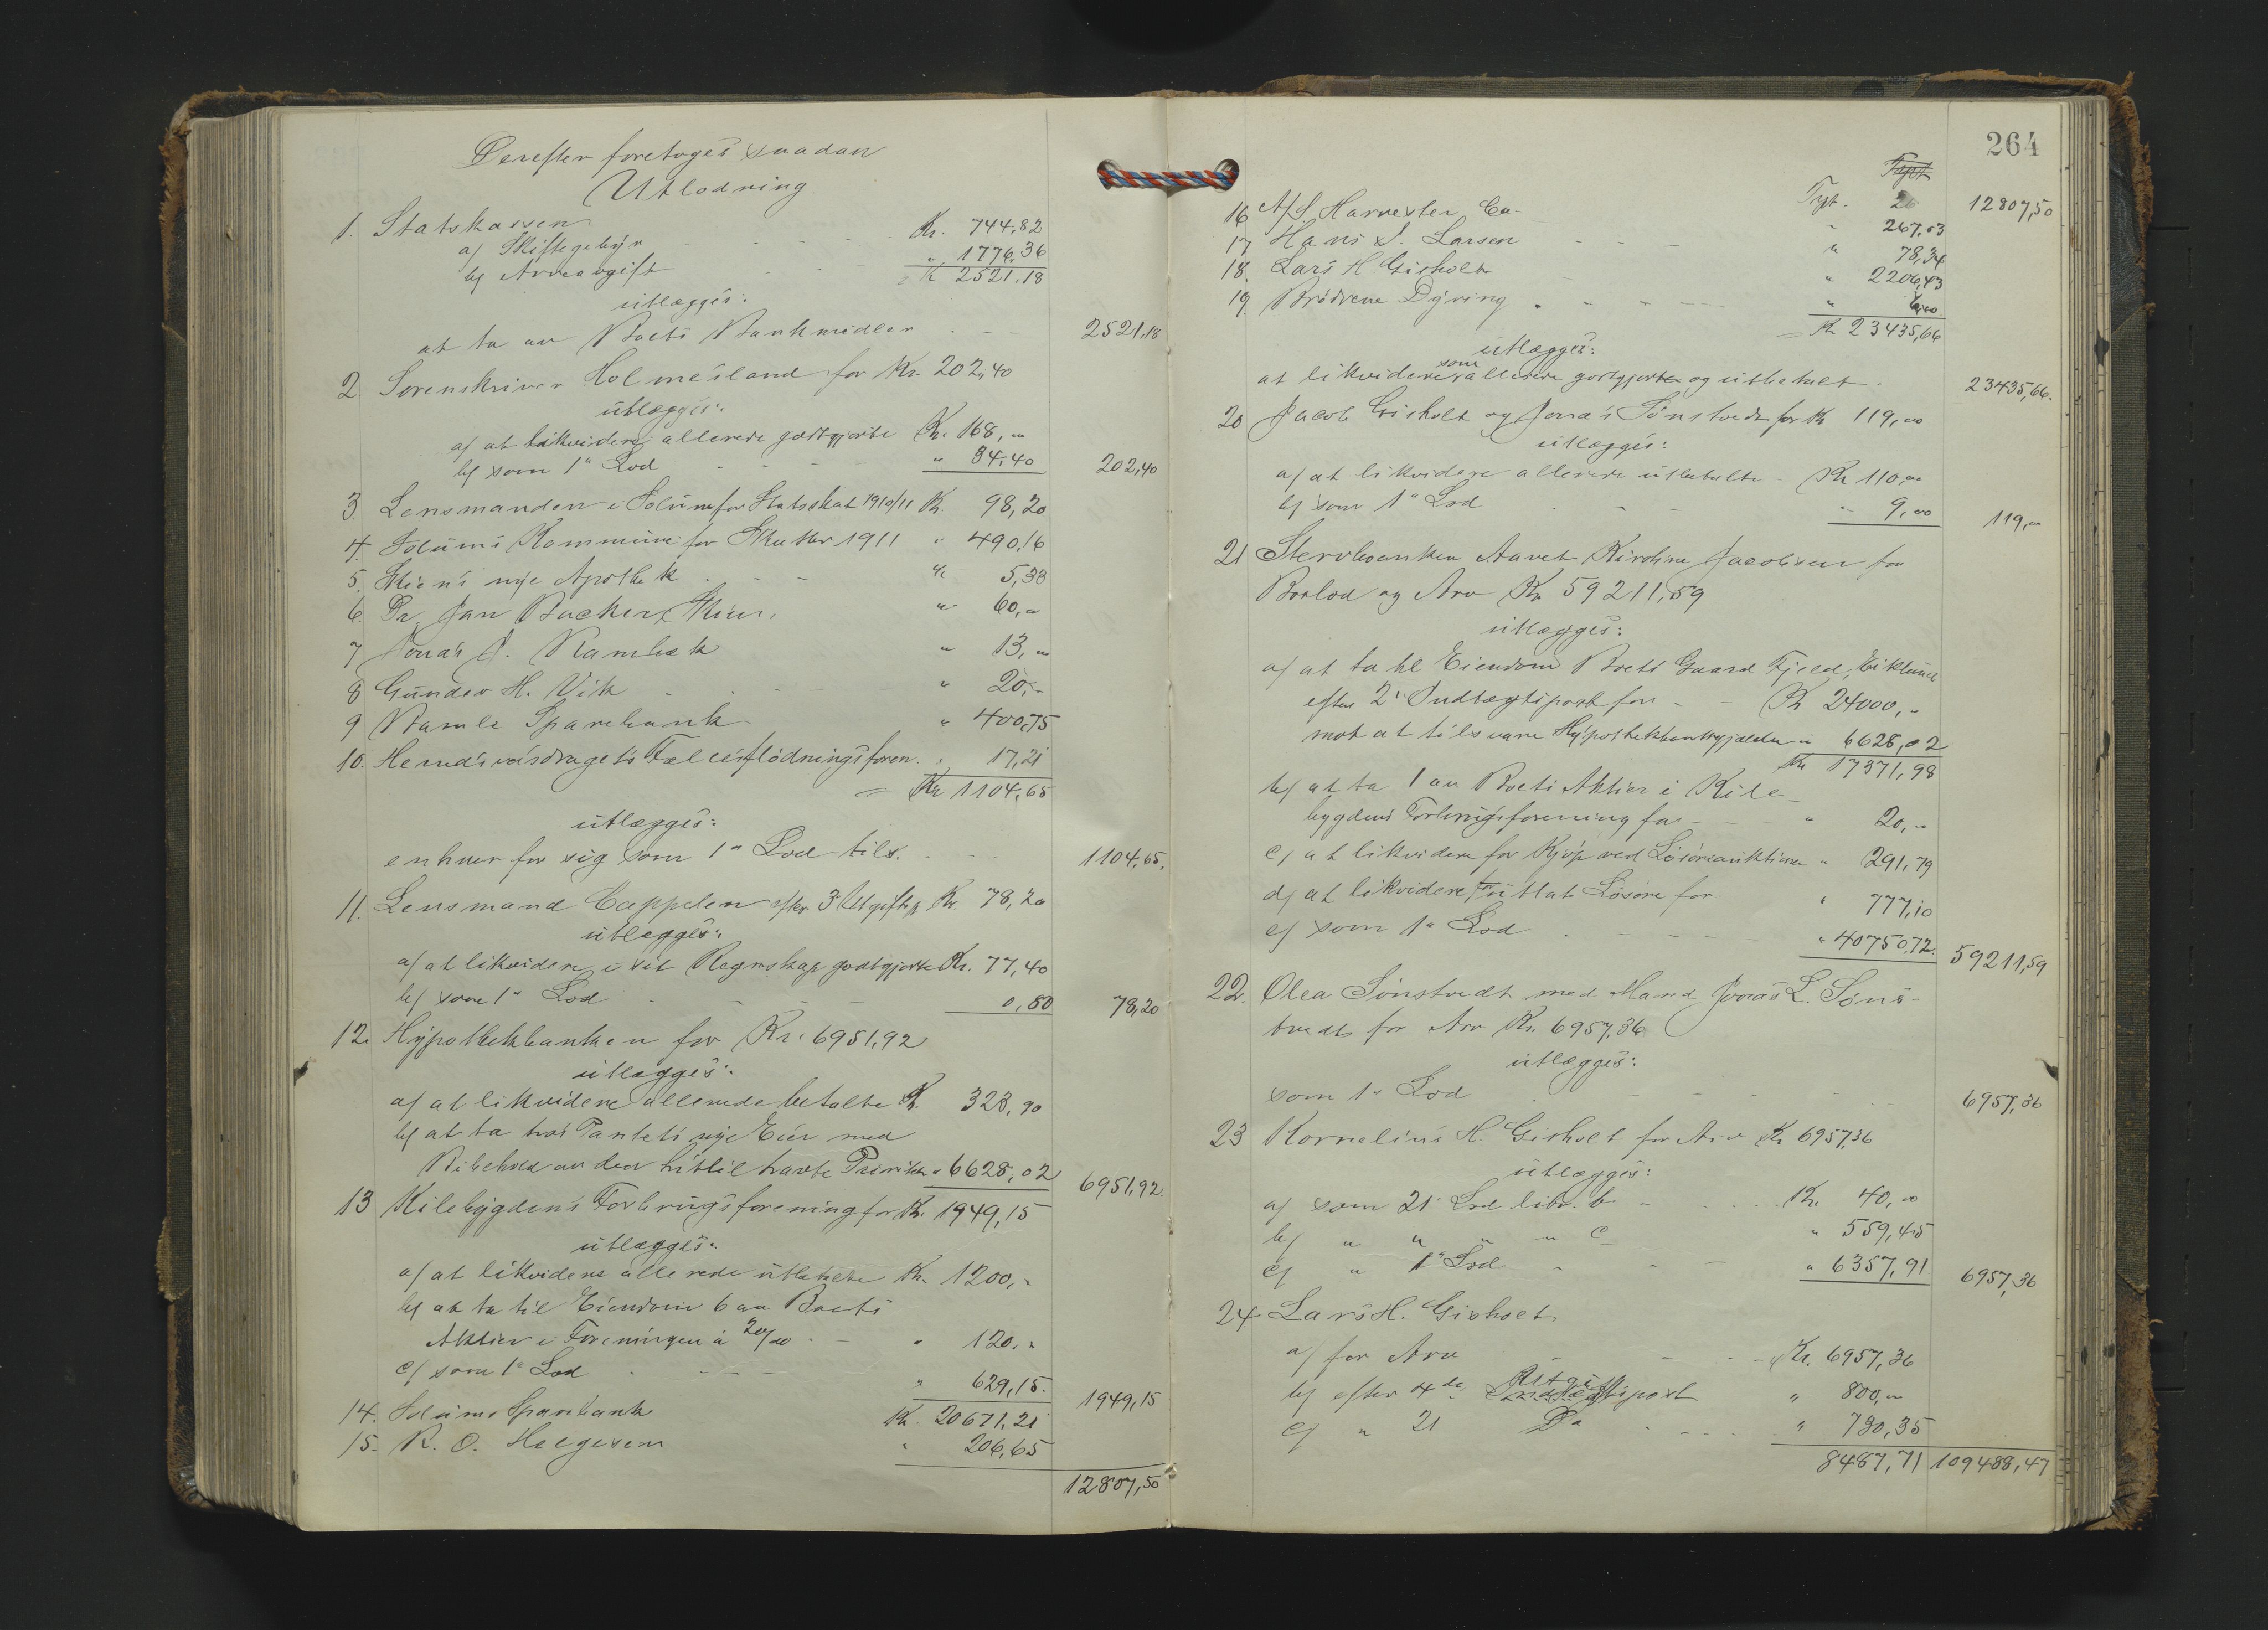 Derefter foretoges saadan
Utlodning
1. Statskassen
a/ Skiftegebyr - - - Kr. 744,82
b/ Arveavgift - - " 1776,36
= K 2521,18
utlægges:
at ta av Boets Bankmidler - - - 2521,18
2 Sorenskriver Holmesland for Kr. 202,40
utlægges:
a/ at likvidere allerede godtgjorte Kr. 168,"
b/ som 1ª Lod - - - " 34,40 202,40
3 Lensmanden i Solum for Statsskat 1910/11 K. 98,20
4. Solums Kommune for Skatter 1911 " 490,16
5. Skiens nye Apothek - - - " 5,33
6. Dr. Jan Backer, Skien, " 60,"
7 Jonas J. Rambæk " 13,"
8 Gunder H. Vik - - - " 20,"
9 Bamle Sparebank " 400,75
10. Herredsvasdragets Fællesflødningsforen. " 17,21
= Kr 1104,65
utlægges:
enhver for sig som 1ª Lod tils. - - - 1104,65.
11. Lensmand Cappelen efter 3' Utgiftsp. Kr. 78,20
utlægges:
a/ at likvidere i sit Regnskap godtgjorte Kr. 77,40
b/ som 1ª Lod - - - 0,80 78,20
12. Hypothekbanken for Kr. 6951,92
utlægges:
a/ at likvidere allerede betalte K. 323,90
b/ at ta hos Pantets nye Eier med
Bibehold av den hittil havte Prioritet " 6628,02 6951,92
13 Kilebygdens Forbrugsforening for Kr. 1949,15
utlægges:
a/ at likvidere allerede utbetalte Kr. 1200,"
b/ at ta til Eiendom 6 av Boets
Aktier i Foreningen à 20/00 - - " 120,"
c/ som 1ª Lod - - - " 629,15. 1949,15
14. Solums Sparebank Kr. 20671,21
15. R. O. Helgesen " 206,65
12807,50
264
Tyst
Tyst. 20 12807,50
16 A/S. Harvester Co - " 267,03
17 Hans J. Larsen - - - " 78,34
18. Lars H. Gisholt - " 2206,43
19. Brødrene Dyring " - - - " 6,00
= K 23435,66
utlægges:
at likvidere som allerede godtgjorte og utbetalt. 23435,66.
20 Jacob Gisholt og Jonas Sønstvedt for Kr 119,00
utlægges:
a/ at likvidere allerede utbetalte - Kr 110,00
b/ som 1ª Lod - - - " 9,00 119,"
21 Stervboenken Aavet Kirstine Jacobsen for
Boslod og Arv Kr 59211,59
utlægges:
a/ at ta til Eiendom Boets Gaard Fjeld, Eiklund
efter 2' Indtægtspost for - - Kr 24000,"
mot at tilsvare Hypothekbankgjælden " 6628,02
Kr 17371,98
b/ at ta 1 av Boets Aktier i Kile-
bygdens Forbrugsforening for - - " 20,"
c/ at likvidere for Kjøp ved Løsøreauktionen " 291,79
d/ at likvidere for utlat Løsøre for " 777,10
e/ som 1ª Lod - - - " 40750,72. 59211,59
22. Olea Sønstvedt med Mand Jonas L. Søns-
tvedt for Arv Kr. 6957,36
utlægges:
som 1ª Lod - - - 6957,36
23 Kornelius H. Gisholt for Arv Kr 6957,36
utlægges:
a/ som 21' Lod litr. b - - - Kr. 40,00
b/ " " " " c " 559,45
c/ " 1ª Lod - - - " 6357,91 6957,36
24 Lars H. Gisholt
a/ for Arv - - - Kr. 6957,36
b/ efter 4de Utgiftspost " 800,00
c/ " 21 Do - - - " 730,35
8487,71 109488,47